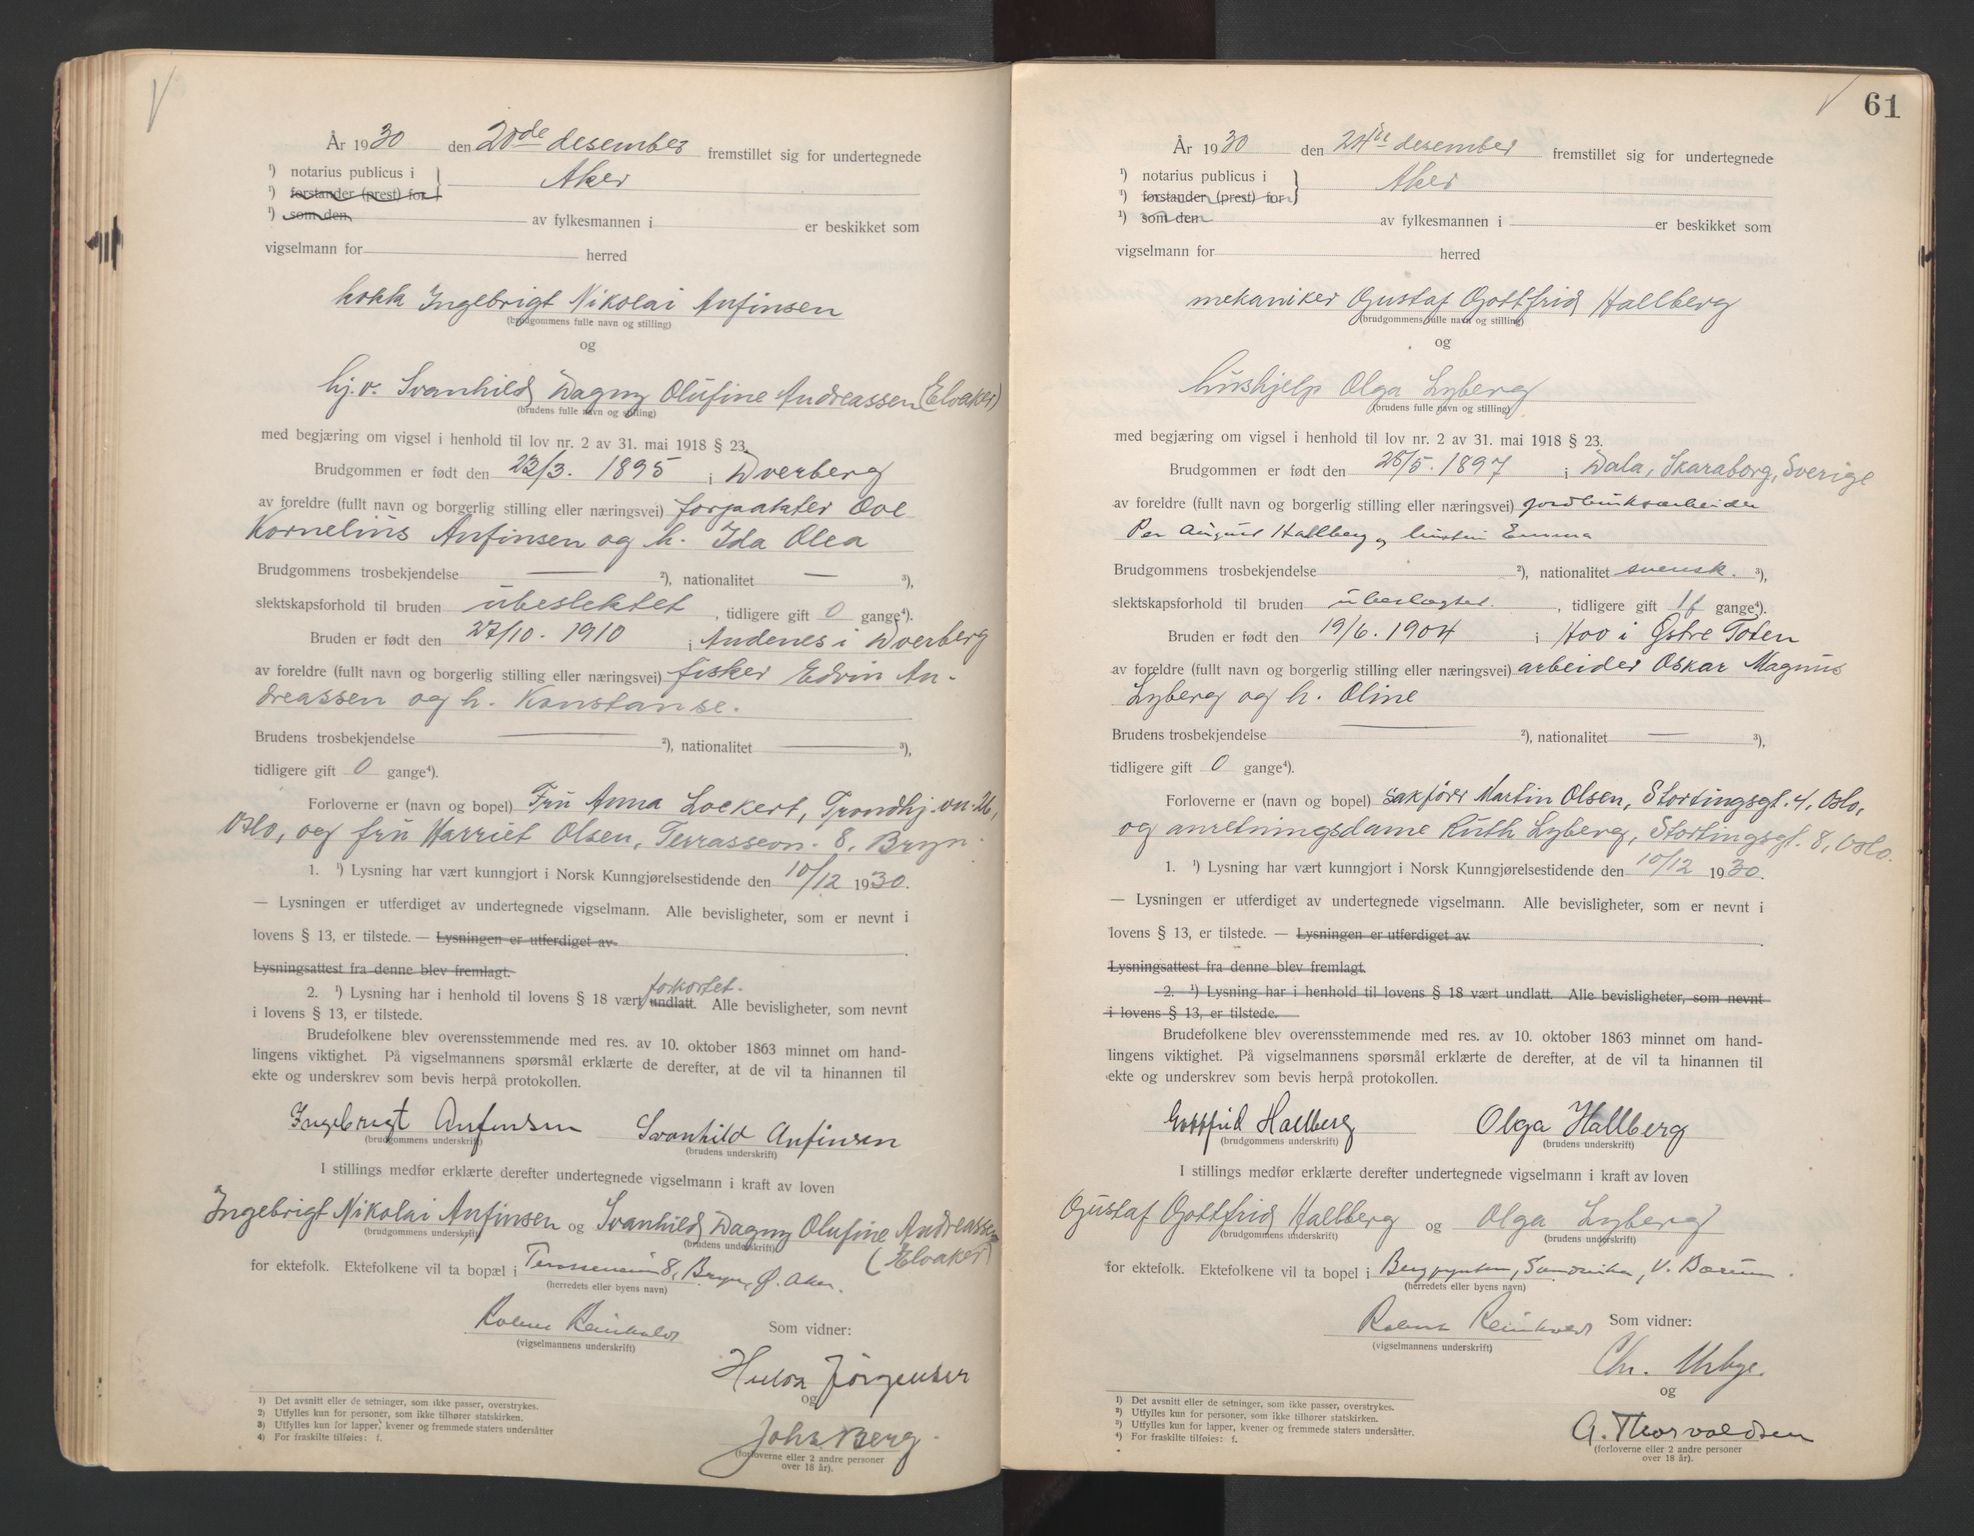 År 1930 den 20de desember fremstillet sig for undertegnede
¹) notarius publicus i Aker
¹) forstander (prest) for
¹) som den av fylkesmannen i er beskikket som
vigselmann for herred
kokk Ingebrigt Nikolai Anfinsen
(brudgommens fulle navn og stilling)
og
hj.v. Svanhild Dagny Olufine Andreassen (Elvaker)
(brudens fulle navn og stilling)
med begjæring om vigsel i henhold til lov nr. 2 av 31. mai 1918 § 23.
Brudgommen er født den 22/3. 1895 i Dverberg
av foreldre (fullt navn og borgerlig stilling eller næringsvei) forpakter Ove
Kornelius Anfinsen og h. Ida Olea
Brudgommens trosbekjendelse — ²), nationalitet — ³),
slektskapsforhold til bruden ubeslektet, tidligere gift 0 gange⁴).
Bruden er født den 27/10. 1910 i Andenes i Dverberg
av foreldre (fullt navn og borgerlig stilling eller næringsvei) fisker Edvin An-
dreassen og h. Konstanse.
Brudens trosbekjendelse — ²), nationalitet — ³),
tidligere gift 0 gange⁴).
Forloverne er (navn og bopel) Fru Anna Lockert, Trondhj.vn. 26,
Oslo, og fru Harriet Olsen, Terrassevn. 8, Bryn.
1. ¹) Lysning har vært kunngjort i Norsk Kunngjørelsestidende den 10/12 1930.
— Lysningen er utferdiget av undertegnede vigselmann. Alle bevisligheter, som er nevnt i
lovens § 13, er tilstede. — Lysningen er utferdiget av
Lysningsattest fra denne blev fremlagt.
forkortet.
2. ¹) Lysning har i henhold til lovens § 18 vært undlatt. Alle bevisligheter, som nevnt
i lovens § 13, er tilstede.
Brudefolkene blev overensstemmende med res. av 10. oktober 1863 minnet om hand-
lingens viktighet. På vigselmannens spørsmål erklærte de derefter, at de vil ta hinannen til
ekte og underskrev som bevis herpå protokollen.
Ingebrigt Anfinsen Svanhild Anfinsen
(brudgommens underskrift) (brudens underskrift)
I stillings medfør erklærte derefter undertegnede vigselmann i kraft av loven
Ingebrigt Nikolai Anfinsen og Svanhild Dagny Olufine Andreassen
(brudgommens underskrift) (brudens underskrift)
(Elvaker)
for ektefolk. Ektefolkene vil ta bopæl i Terrasseveien 8, Bryn, Ø. Aker.
(herredets eller byens navn)
Reinholdt Som vidner:
(vigselmannens underskrift)
Jörgensen
og
Joh. Berg.
(forloverne eller 2 andre personer
over 18 år).
1) Det avsnitt eller de setninger, som ikke passer, overstrykes.
2) Utfylles kun for personer, som ikke tilhører statskirken.
3) Utfylles kun for lapper, kvener og fremmede staters undersåtter
4) For fraskilte tilføies: f.
61
År 1930 den 24de desember fremstillet sig for undertegnede
¹) notarius publicus i Aker
¹) forstander (prest) for
¹) som den av fylkesmannen i er beskikket som
vigselmann for herred
mekaniker Gustaf Gottfrid Hallberg
(brudgommens fulle navn og stilling)
og
hushjelp Olga Lyberg
(brudens fulle navn og stilling)
med begjæring om vigsel i henhold til lov nr. 2 av 31. mai 1918 § 23.
Brudgommen er født den 28/5. 1897 i Dala, Skaraborg, Sverige
av foreldre (fullt navn og borgerlig stilling eller næringsvei) jordbruksarbeider
Per August Hallberg og hustru Emma
Brudgommens trosbekjendelse ²), nationalitet svensk. ³),
slektskapsforhold til bruden ubeslægtet, tidligere gift 1f gange⁴).
Bruden er født den 19/6. 1904 i Hoo i Østre Toten
av foreldre (fullt navn og borgerlig stilling eller næringsvei) arbeider Oskar Magnus
Lyberg og h. Oline
Brudens trosbekjendelse — ²), nationalitet — ³),
tidligere gift 0 gange⁴).
Forloverne er (navn og bopel) sakfører Martin Olsen, Stortingsgt. 4, Oslo,
og anretningsdame Ruth Lyberg, Stortingsgt. 8, Oslo.
1. ¹) Lysning har vært kunngjort i Norsk Kunngjørelsestidende den 10/12 1930.
— Lysningen er utferdiget av undertegnede vigselmann. Alle bevisligheter, som er nevnt i
lovens § 13, er tilstede. — Lysningen er utferdiget av
Lysningsattest fra denne blev fremlagt.
2. ¹) Lysning har i henhold til lovens § 18 vært undlatt. Alle bevisligheter, som nevnt
i lovens § 13, er tilstede.
Brudefolkene blev overensstemmende med res. av 10. oktober 1863 minnet om hand-
lingens viktighet. På vigselmannens spørsmål erklærte de derefter, at de vil ta hinannen til
ekte og underskrev som bevis herpå protokollen.
Gottfrid Hallberg Olga Hallberg
(brudgommens underskrift) (brudens underskrift)
I stillings medfør erklærte derefter undertegnede vigselmann i kraft av loven
Gustaf Gottfrid Hallberg og Olga Lyberg
(brudgommens underskrift) (brudens underskrift)
for ektefolk. Ektefolkene vil ta bopel i Sandvika, V. Bærum.
(herredets eller byens navn)
Reinholdt Som vidner:
(vigselmannens underskrift)
Chr. Urbye.
og
G. Thorvaldsen
(forloverne eller 2 andre personer
over 18 år).
1) Det avsnitt eller de setninger, som ikke passer, overstrykes.
2) Utfylles kun for personer, som ikke tilhører statskirken.
3) Utfylles kun for lapper, kvener og fremmede staters undersåtter.
4) For fraskilte tilføies: f.